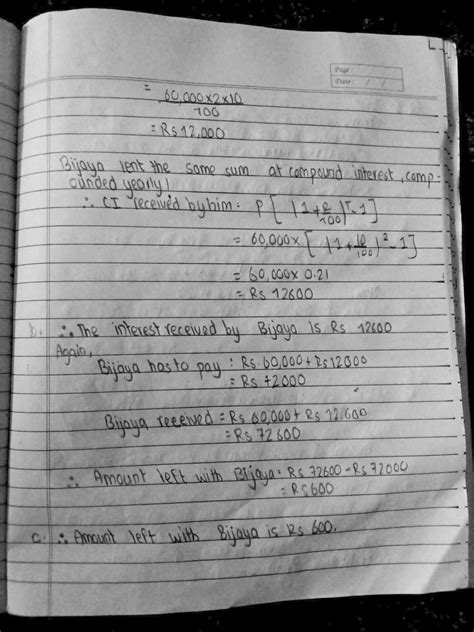 Page:
Date: / /
= 60,000×2×10
100
= Rs 12,000
Bijaya lent the same sum at compound interest, comp-
ounded yearly,
∴ CI received by him = P [ (1+R/100)^T - 1]
= 60,000× [ (1+10/100)^2 - 1]
= 60,000× 0.21
= Rs 12600
b. ∴ The interest received by Bijaya is Rs 12600
Again,
Bijaya has to pay = Rs. 60,000 + Rs 12000
= Rs 72000
Bijaya received = Rs 60,000 + Rs 12,600
= Rs 72600
∴ Amount left with Bijaya = Rs 72600 - Rs 72000
= Rs 600
c. ∴ Amount left with Bijaya is Rs 600.